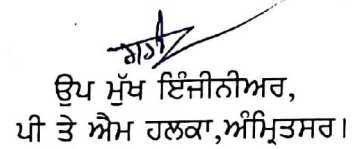 ਉਪ ਮੁੱਖ ਇੰਜੀਨੀਅਰ,
ਪੀ ਤੇ ਐਮ ਹਲਕਾ,ਅੰਮ੍ਰਿਤਸਰ।